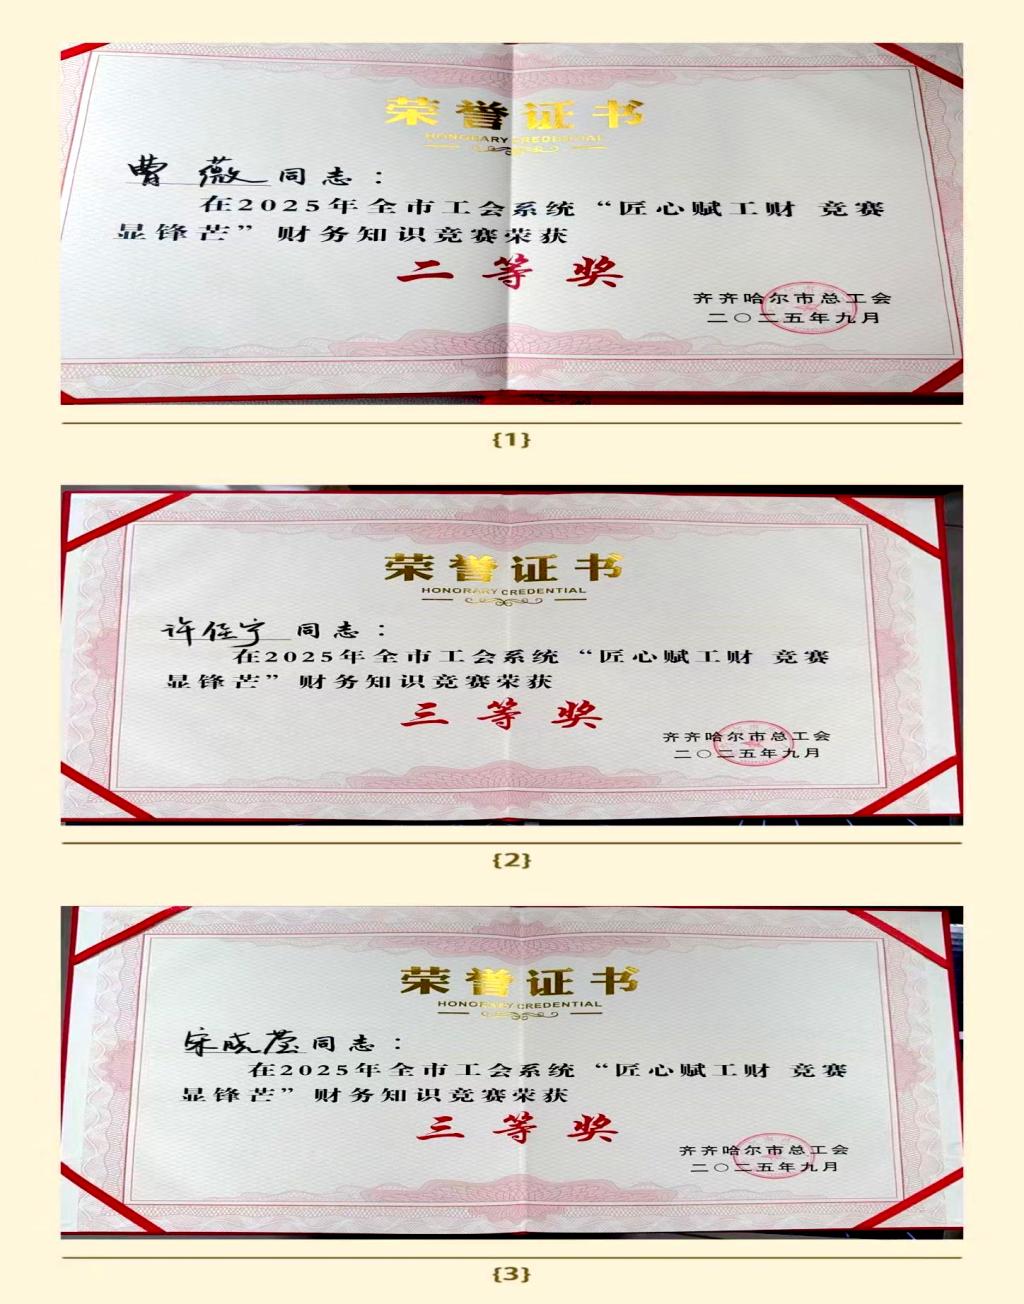 荣誉证书
HONORARY CREDENTIAL
曹薇同志：
在2025年全市工会系统“匠心赋工财 竞赛
显锋芒”财务知识竞赛荣获
二等奖
齐齐哈尔市总工会
二〇二五年九月
{1}
荣誉证书
HONORARY CREDENTIAL
许侹宁同志：
在2025年全市工会系统“匠心赋工财 竞赛
显锋芒”财务知识竞赛荣获
三等奖
齐齐哈尔市总工会
二〇二五年九月
{2}
荣誉证书
HONORARY CREDENTIAL
宋晓莹同志：
在2025年全市工会系统“匠心赋工财 竞赛
显锋芒”财务知识竞赛荣获
三等奖
齐齐哈尔市总工会
二〇二五年九月
{3}